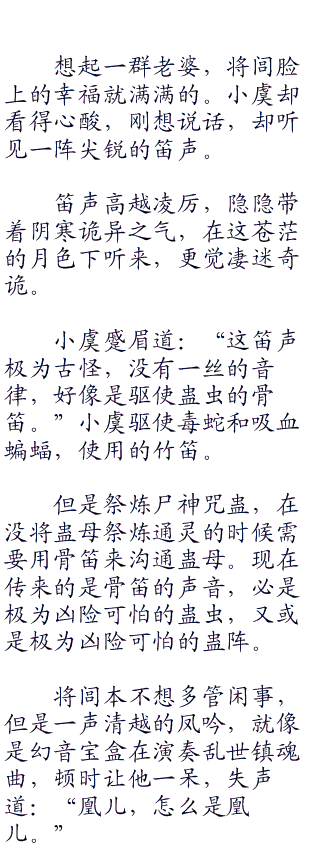 想起一群老婆，将闾脸
上的幸福就满满的。小虞却
看得心酸，刚想说话，却听
见一阵尖锐的笛声。
笛声高越凌厉，隐隐带
着阴寒诡异之气，在这苍茫
的月色下听来，更觉凄迷奇
诡。
小虞蹙眉道：“这笛声
极为古怪，没有一丝的音
律，好像是驱使蛊虫的骨
笛。”小虞驱使毒蛇和吸血
蝙蝠，使用的竹笛。
但是祭炼尸神咒蛊，在
没将蛊母祭炼通灵的时候需
要用骨笛来沟通蛊母。现在
传来的是骨笛的声音，必是
极为凶险可怕的蛊虫，又或
是极为凶险可怕的蛊阵。
将闾本不想多管闲事，
但是一声清越的凤吟，就像
是幻音宝盒在演奏乱世镇魂
曲，顿时让他一呆，失声
道：“凰儿，怎么是凰
儿。”